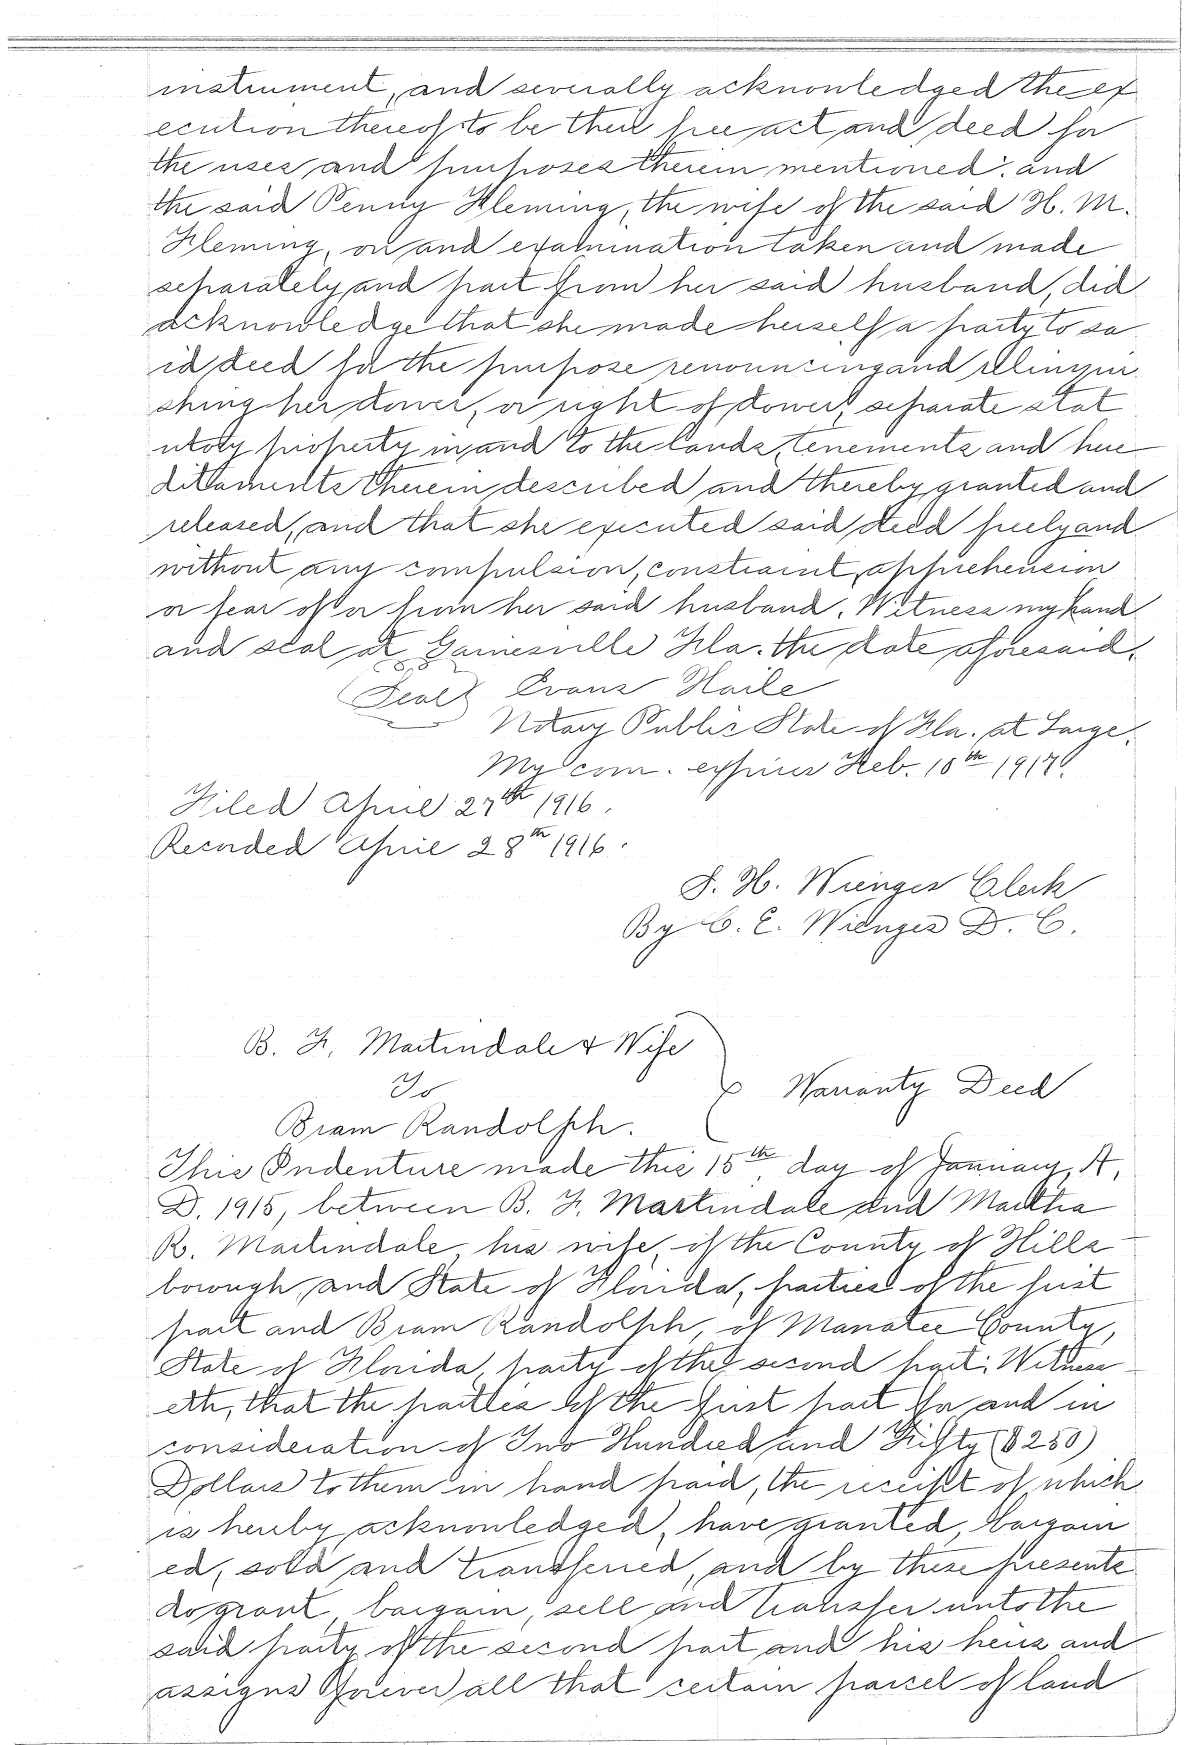 instrument, and severally acknowledged the ex
ecution thereof to be their free act and deed for
the uses and purposes therein mentioned: and
the said Penny Fleming, the wife of the said H. M.
Fleming, on and examination taken and made
separately and part from her said husband, did
acknowledge that she made herself a party to sa
id deed for the purpose renouncing and relinqui
shing her dower, or right of dower, separate stat
utory property in and to the lands, tenements and here
ditaments therein described and thereby granted and
released, and that she executed said deed freely and
without any compulsion, constraint, apprehension
or fear of or from her said husband. Witness my hand
and seal at Gainesville Fla. the date aforesaid.
(Seal) Evans Haile
Notary Public State of Fla. at Large.
My com. expires Feb. 10th 1917.
Filed April 27th 1916.
Recorded April 28th 1916.
S. H. Wienges Clerk
By C. E. Wienges D. C.
B. F. Martindale & Wife
To
Warranty Deed
Bram Randolph.
This Indenture made this 15th, day of January, A.
D. 1915, between B. F. Martindale and Martha
R. Martindale, his wife, of the County of Hills
borough, and State of Florida, parties of the first
part and Bram Randolph, of Manatee County,
State of Florida, party of the second part: Witness
eth, that the parties of the first part for and in
consideration of Two Hundred and Fifty ($250)
Dollars to them in hand paid, the receipt of which
is hereby acknowledged, have granted, bargain
ed, sold and transferred, and by these presents
do grant, bargain, sell and transfer unto the
said party of the second part and his heirs and
assigns forever all that certain parcel of land